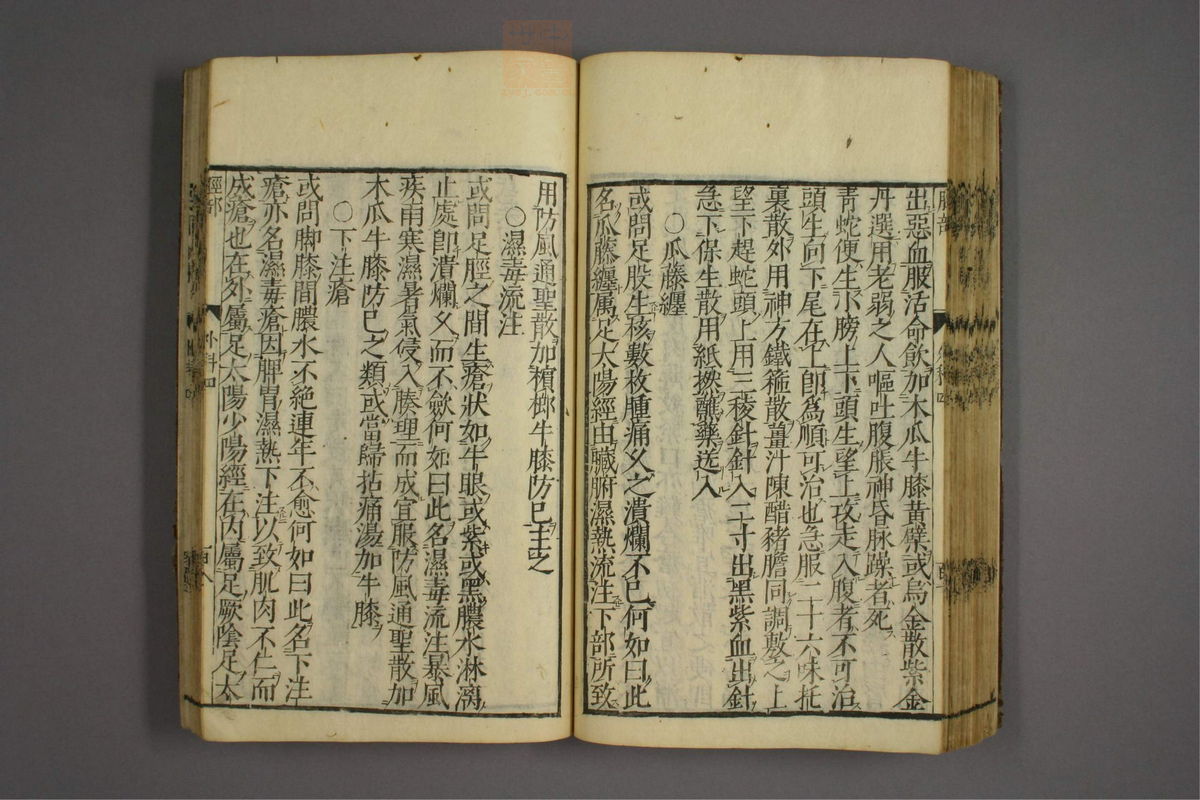 出惡血服活命飲加木瓜牛膝黃檗或烏金散紫金
丹選用老弱之人嘔吐腹脹神昏脉躁者死
青蛇便生小膀上下頭生望上攻走入腹者不可治
頭生向下尾在上卽爲順可治也急服二十六味托
裏散外用神方鐵箍散薑汁陳醋豬膽同調敷之上
望下趕蛇頭上用三稜針針入二寸出黑紫血出針
急下保生散用紙撚蘸藥送入
○瓜藤纏
或問足股生核數枚腫痛久之潰爛不已何如曰此
名瓜藤纏屬足太陽經由臟腑濕熱流注下部所致
用防風通聖散加檳榔牛膝防已主之
○濕毒流注
或問足脛之間生瘡狀如牛眼或紫或黑膿水淋漓
止處卽潰爛久而不歛何如曰此名濕毒流注暴風
疾雨寒濕暑氣侵入腠理而成宜服防風通聖散加
木瓜牛膝防已之類或當歸拈痛湯加牛膝
○下注瘡
或問脚膝間膿水不絶連年不愈何如曰此名下注
瘡亦名濕毒瘡因脾胃濕熱下注以致肌肉不仁而
成瘡也在外屬足太陽少陽經在內屬足厥陰足太
脛部
外科四
百八